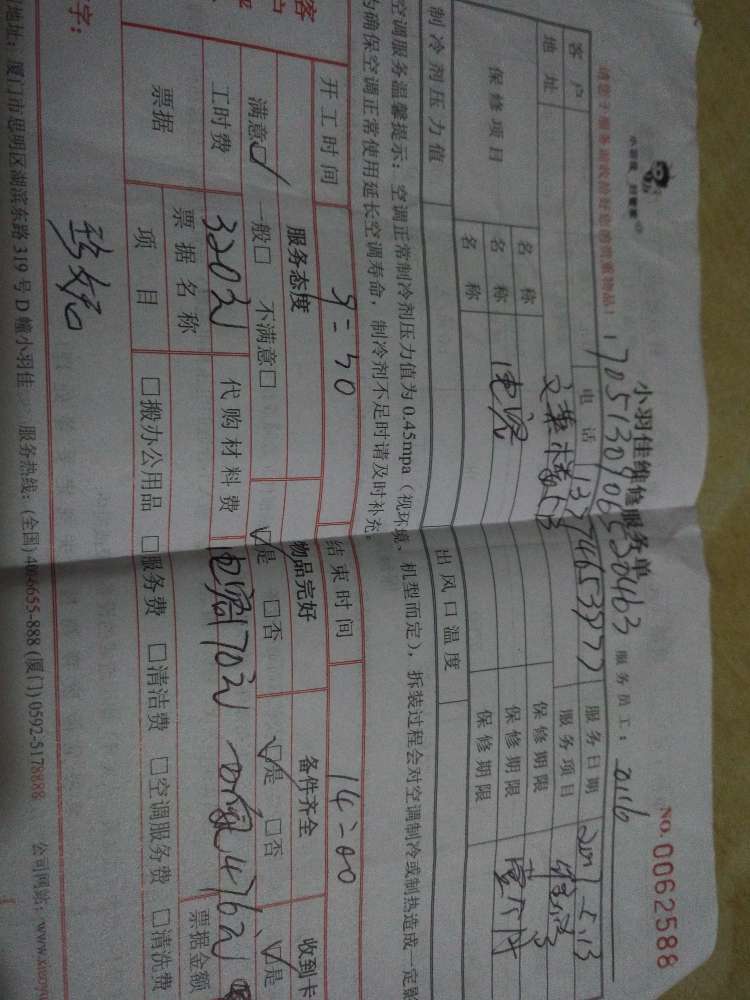 小羽佳 好管家
小羽佳维修服务单
NO. 0062588
请您于服务前收拾好您的贵重物品!
服务员工: 2116
客户 电话 13774653977 服务日期 2017-5.13
地址 服务项目
保修项目 名称 保修期限
名称 保修期限
名称 保修期限
制冷剂压力值 出风口温度
空调服务温馨提示:空调正常制冷剂压力值为0.45mpa(视环境、机型而定),拆装过程会对空调制冷或制热造成一定影
为确保空调正常使用延长空调寿命,制冷剂不足时请及时补充。
开工时间 9=30 结束时间 14=00
服务态度 物品完好 备件齐全 收到卡
满意☑ 一般□ 不满意□ ☑是 □否 ☑是 □否 ☑是
工时费 320元 代购材料费 电容170元
票据 票据名称 票据金额
项目 □搬办公用品 □服务费 □清洁费 □空调服务费 □清洗费
字:
地址:厦门市思明区湖滨东路319号D幢小羽佳 服务热线:(全国)400-6655-888 (厦门)0592-5178888 公司网站:www.xiaoyu